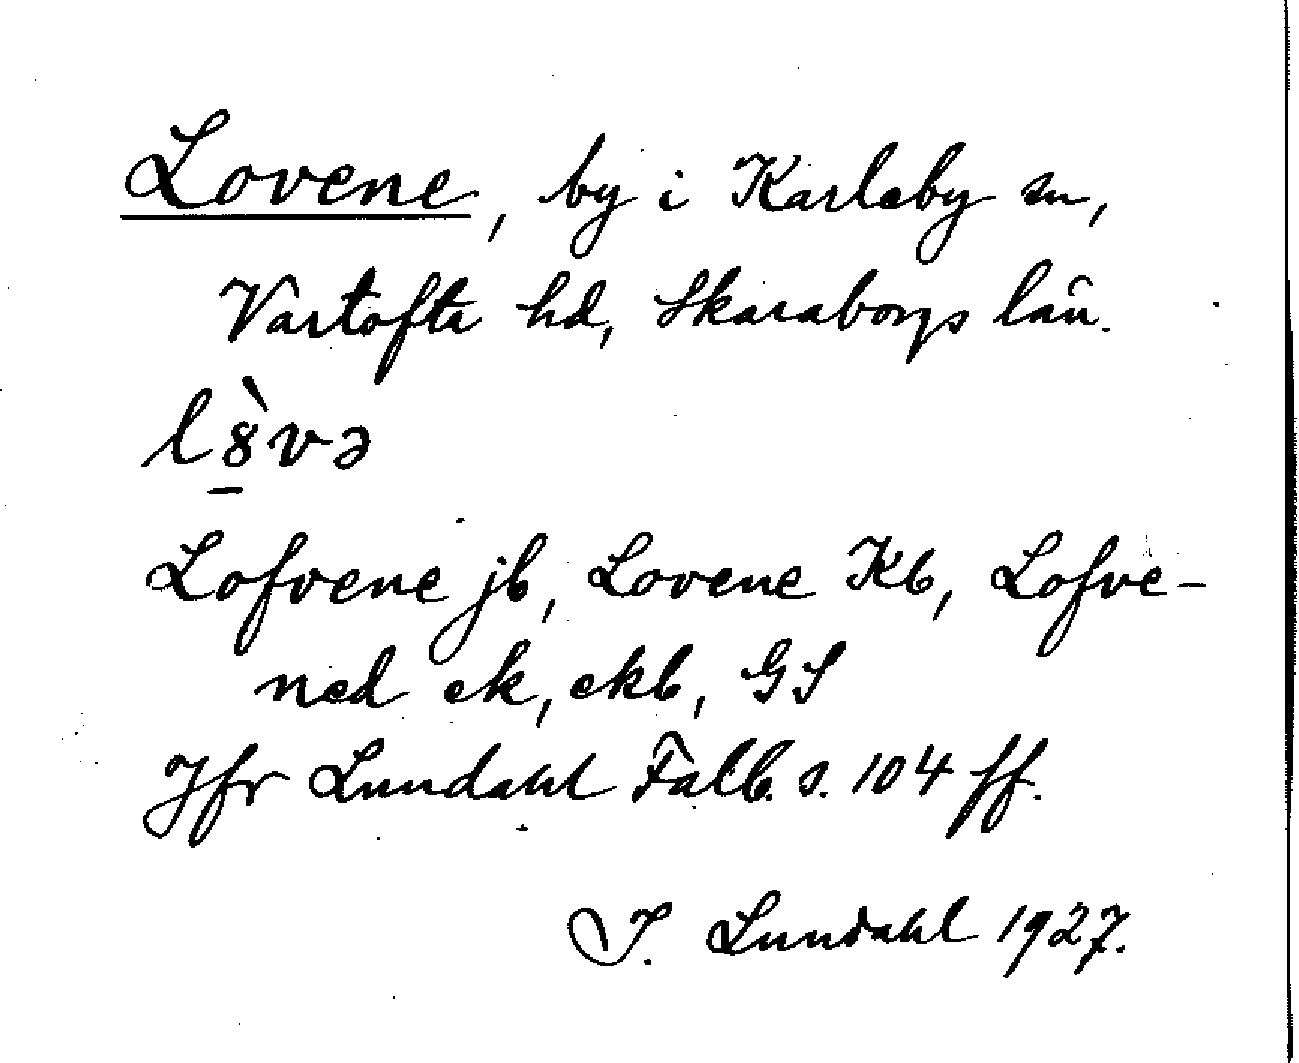 Lovene, by i Karleby sn,
Vartofta hd, Skaraborgs län.
l8̱̀və
Lofvene jb, Lovene Kb, Lofve-
ned ek, ekb, GS
Jfr Lundahl Falb. s. 104 ff.
I. Lundahl 1927.